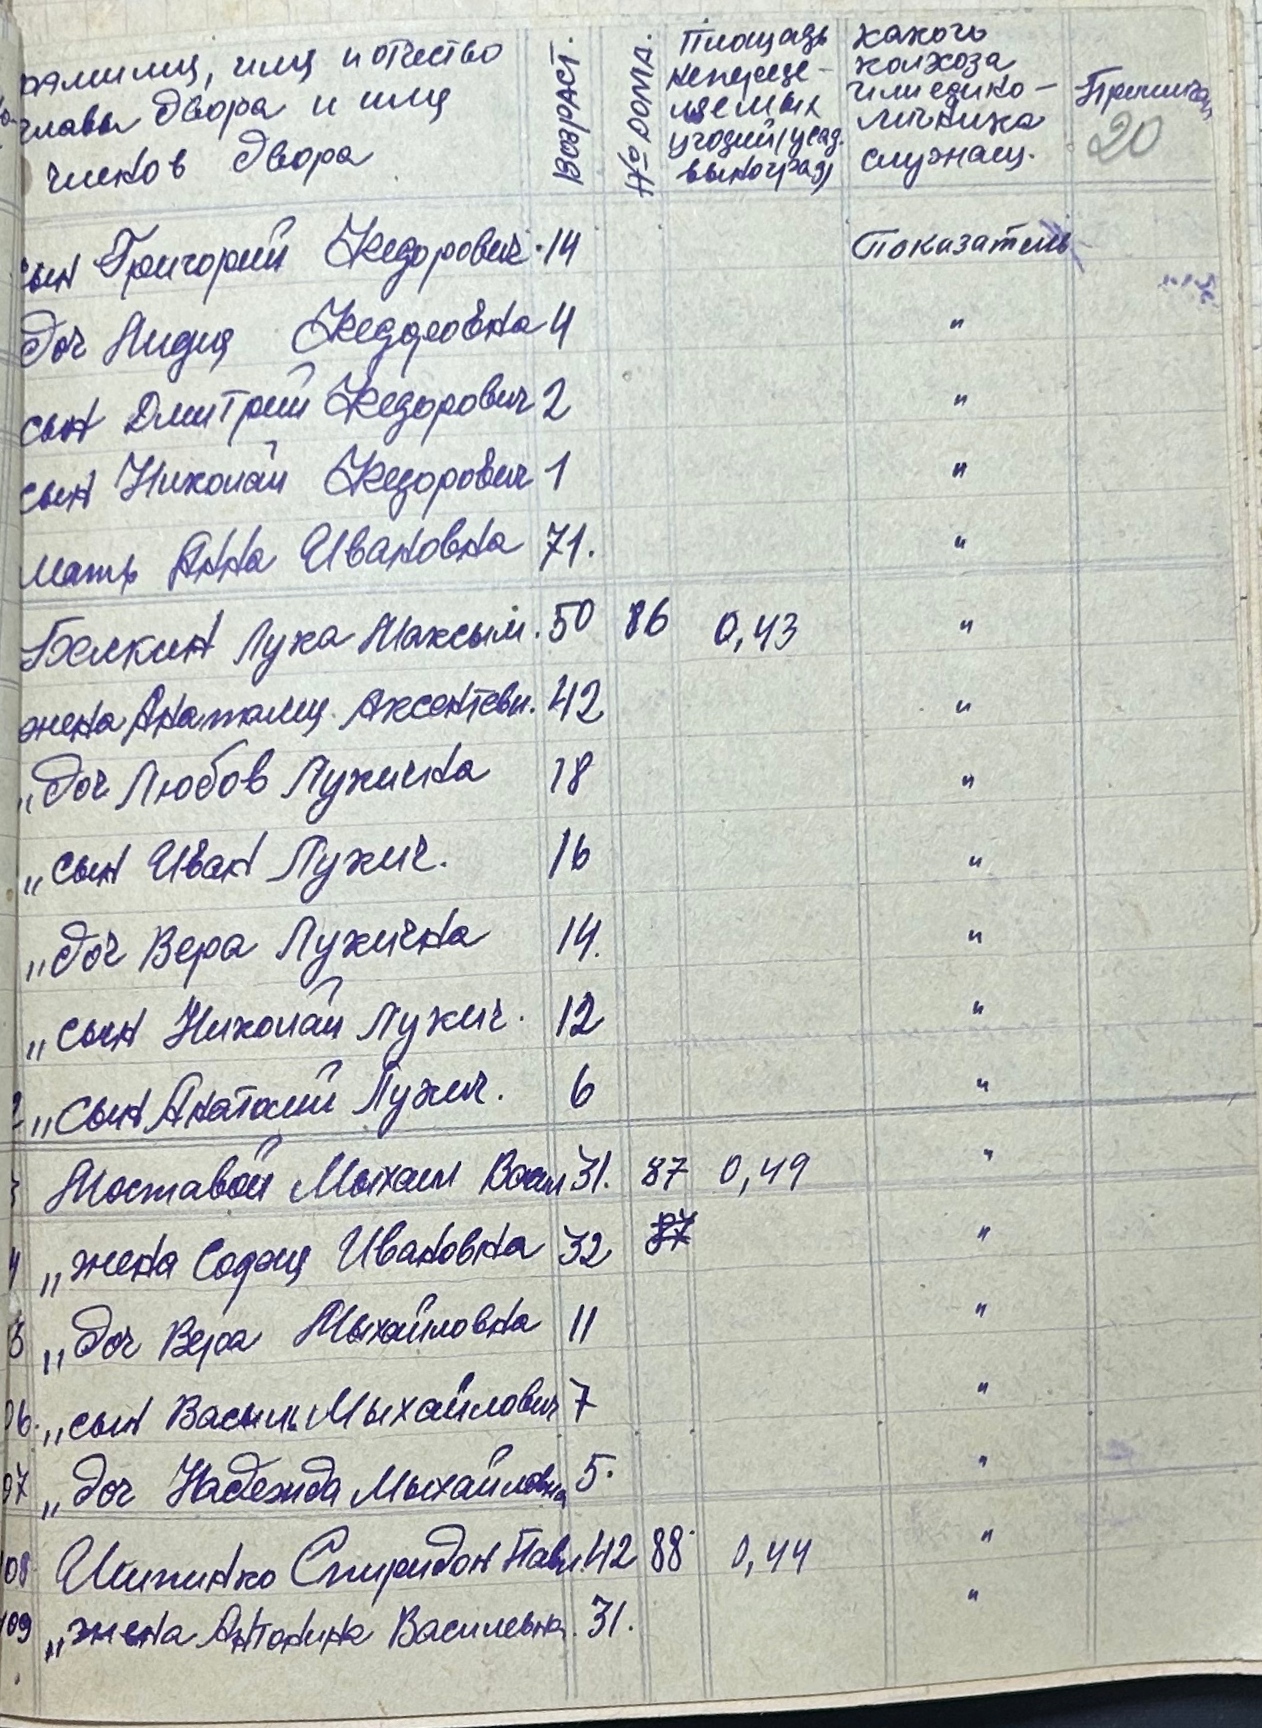 фамилия, имя и отчество главы двора и имя членов двора | Возраст. | № дома. | Площадь непеределяемых угодий (усад. виноград) | какого колхоза или единоличника служащ. | Примечан
20
сын Григорий Хведорович 14 Показатель
доч Лидия Хведоровна 4 "
сын Дмитрий Хведорович 2 "
сын Николай Хведорович 1 "
мать Анна Ивановна 71. "
Белкин Лука Максым. 50 86 0,43 "
жена Анатолия Аксентевн. 42 "
"доч Любов Лукична 18 "
"сын Иван Лукич. 16 "
"доч Вера Лукична 14. "
"сын Николай Лукич. 12 "
"сын Анатолий Лукич. 6 "
Моставой Мыхаил Васил 31. 87 0,49 "
"жена София Ивановна 32 87 "
5 "доч Вера Мыхайловна 11 "
06. "сын Василь Мыхайлович 7 "
07 "доч Надежда Мыхайловна 5. "
108 Спиридон Павл. 42 88 0,44 "
109 "жена Антонина Василевна. 31. "